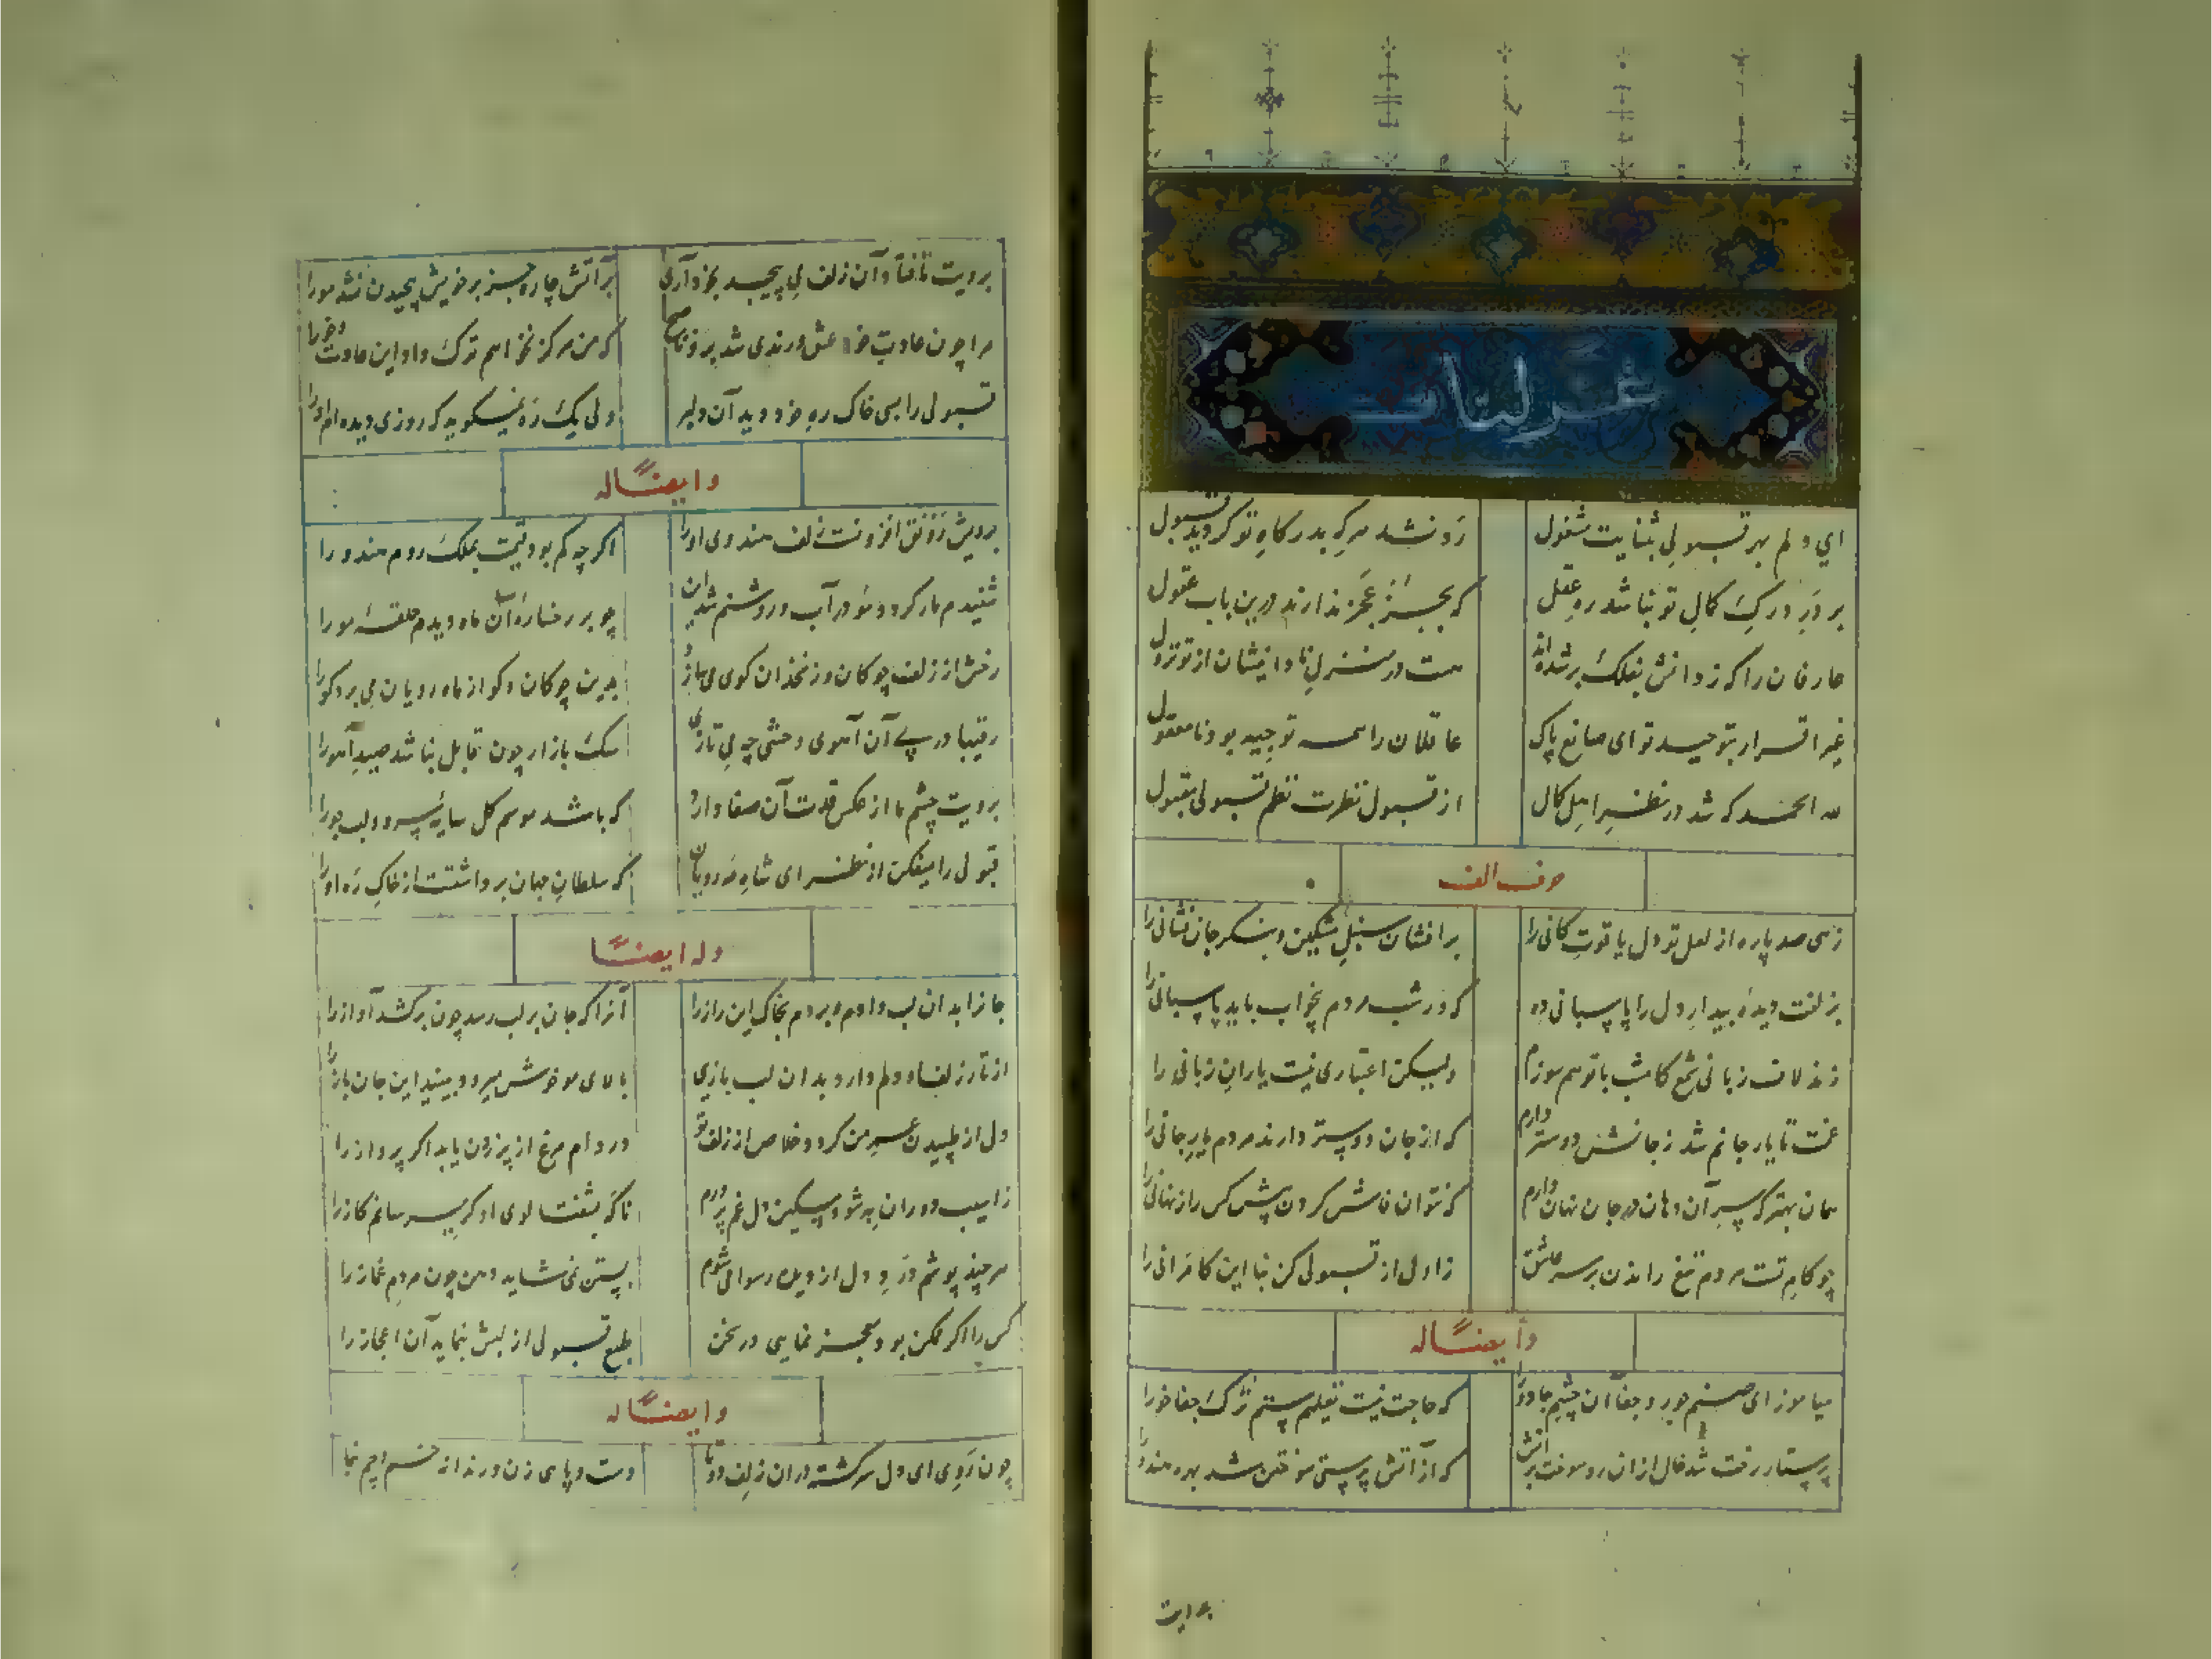 غزلیات
ای دلم بهر قبولی بثنایت مشغول
رد نشد هر که بدرکاه تو کردید قبول
بر در درک کمال تو نباشد ره عقل
که بجز عجز ندارند درین باب عقول
عارفان را که ز دانش بفلک بر شده اند
هست در منزل نادانیشان از تو نزول
غیر اقرار بتوحید تو ای صانع پاک
عاقلان را همه توجیه بود نامعقول
لله الحمد که شد در نظر اهل کمال
از قبول نظرت نظم قبولی مقبول
حرف الف
زهی صد پاره از لعل تو دل یاقوت کانی را
برافشان سنبل مشکین و بنکر جان فشانی را
بزلفت دیده بیدار دل را پاسبانی ده
که در شب مردم بخواب باید پاسبانی را
زند لاف زبانی شمع کامشب با تو هم سوزم
ولیکن اعتباری نیست یاران زبانی را
غمت تا یار جانم شد ز جانش دوستر دارم
که از جان دوستر دارند مردم یار جانی را
همان بهتر که سر آن دهان در جان نهان دارم
که نتوان فاش کردن پیش کس راز نهانی را
چو کام تست مردم تیغ راندن بر سر عاشق
ز اول از قبولی کن بنا این کامرانی را
وایضًا له
میاموز ای صنم جور و جفا آن چشم جادو را
که حاجت نیست تعلیم ستم ترک جفاخو را
پرستار رخت شد خال از ان رو سوخت بر آتش
که از آتش پرستی سوختن شد بهره هندو را
برویت
برویت تافتاد آن زلف می پیچد بخود آری
بر آتش چاره جز بر خویش پیچیدن نشد مو را
مرا چون عادت و خو عشق و رندی شد برو ناصح
که من هرکز نخواهم ترک داد این عادت و خو را
قبولی را بسی خاک ره خود دید آن دلبر
ولی یک ره نمیکوید که روزی دیده ام او را
وایضًا له
برویش رونق افزونست زلف هندوی او را
اکر چه کم بود قیمت بملک روم هندو را
شنیدم مار کردد مو در آب و روشنم شد این
چو بر رخساره آن ماه دیدم حلقه مو را
رخش از زلف چوکان وز زنخدان کوی می سازد
بدین چوکان و کو از ماه رویان می برد کو را
رقیبا در پی آن آهوی وحشی چه می تازی
سک بازار چون قابل نباشد صید آهو را
برویت چشم ما از عکس قدت آن صفا دارد
که باشد موسم کل سایه سرو و لب جو را
قبولی را میفکن از نظر ای شاه مه رویان
که سلطان جهان برداشتست از خاک ره او را
وله ایضًا
جانرا بدان لب دادم و بردم بخاک این راز را
آنرا که جان بر لب رسد چون برکشد آواز را
از تار زلف او دلم دارد بدان لب بازیی
بالای مو خوش میرود ببینید این جان باز را
دل از طپیدن عسر من کردد خلاص از زلف تو
در دام مرغ از پر زدن یابد اکر پرواز را
ز اسیب دوران به شود مسکین دل غم پرورم
ناکه بشفتالوی او کر میرسانم کاز را
هرچند پوشم درد دل از دیده رسوا می شوم
بستن نمی شاید دهن چون مردم غماز را
کس را اکر ممکن بود معجز نمایی در سخن
طبع قبولی از لبش بنماید آن اعجاز را
وایضًا له
چون روی ای دل سرکشته در ان زلف دوتا
دست و پایی زن و در نه از